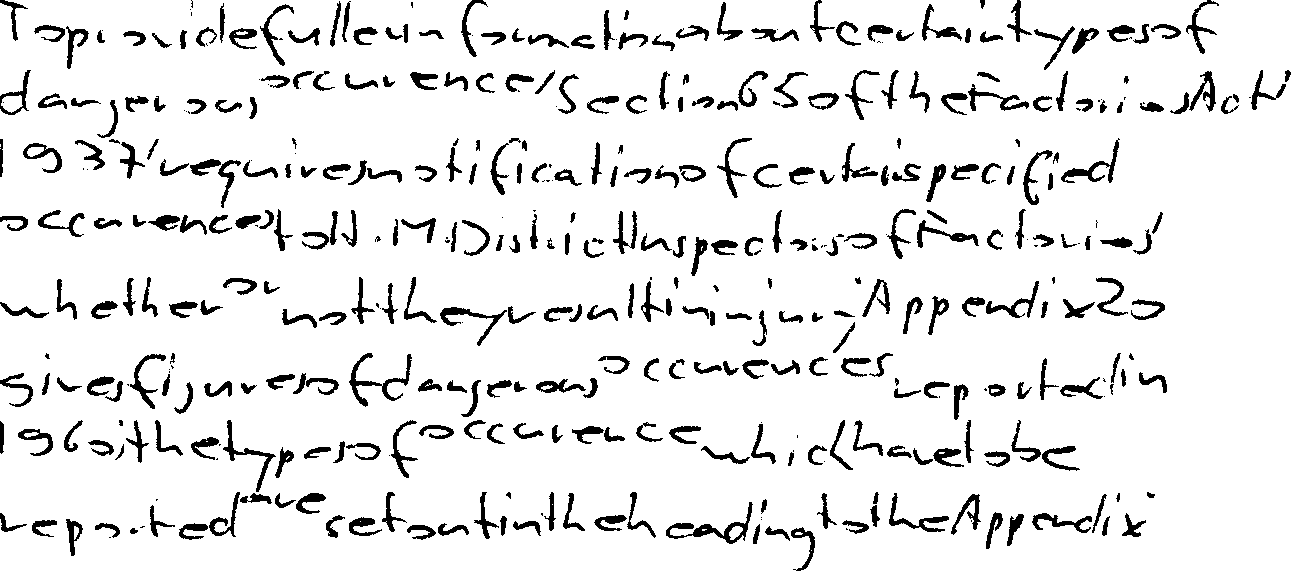 To provide fuller information about certain types of
dangerous occurrence, Section 65 of the Factories Act,
1937, requires notification of certain specified
occurences to H.M. District Inspectors of Factories,
whether or not they result in injury. Appendix 20
gives figures of dangerous occurences reported in
1960; the types of occurence which have to be
reported are set out in the heading to the Appendix.